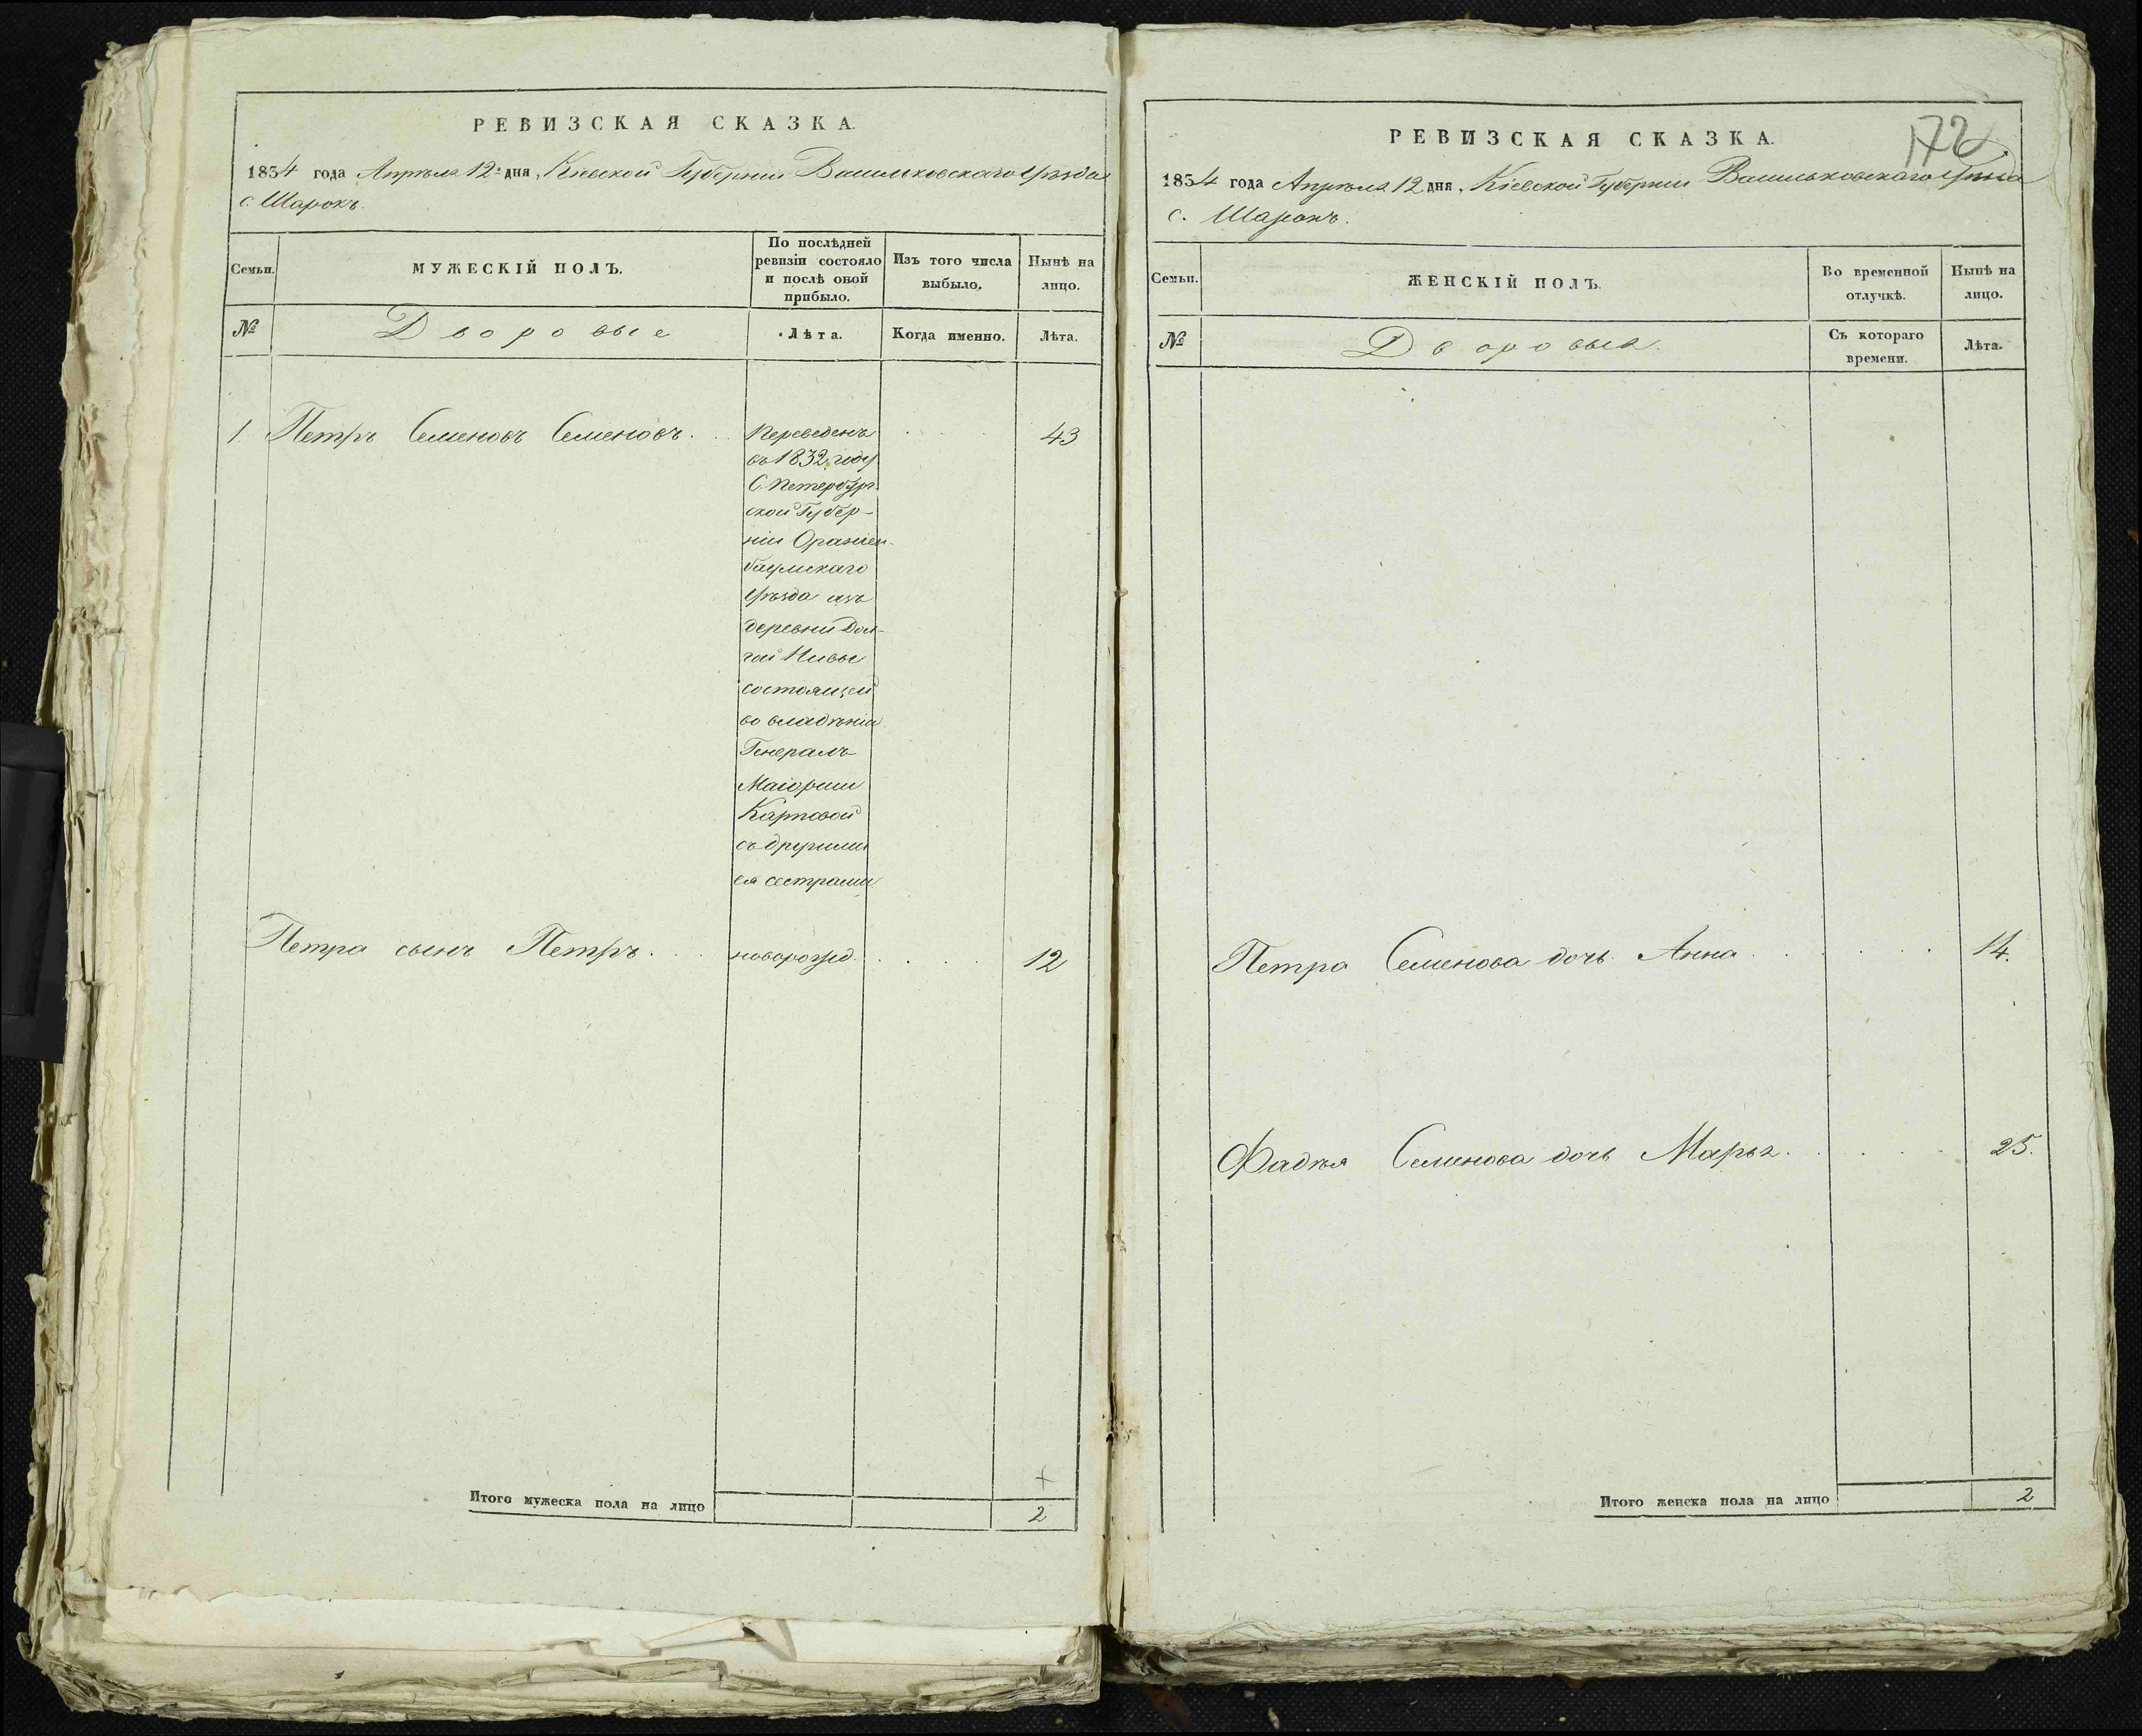 РЕВИЗСКАЯ СКАЗКА.
1854 года Апрѣля 12 дня, Кіевской Губерніи Васильковскаго Уѣзда
с. Шарокъ.
Семьи.
МУЖЕСКІЙ ПОЛЪ.
По послѣдней
ревизіи состояло
и послѣ оной
прибыло.
Изъ того числа
выбыло,
Нынѣ на
лицо.
№
Дворовые
Лѣта.
Когда именно.
Лѣта.
1. Петръ Семеновъ Семеновъ. . . Переведенъ . . . . 43
въ 1832 году
С. Петербург-
ской Губер-
ніи Ораніен-
баумскаго
Уѣзда изъ
деревни Дол-
гой Нивы
состоящей
во владѣніи
Генералъ
Маіорши
Карповой
съ другими
ея сестрами
Петра сынъ Петръ. . . новорожд. . . . . 12
Итого мужеска пола на лицо 2
172
РЕВИЗСКАЯ СКАЗКА.
1854 года Апрѣля 12 дня, Кіевской Губерніи Васильковскаго Уѣзда
с. Шарокъ.
Семьи.
ЖЕНСКІЙ ПОЛЪ.
Во временной
отлучкѣ.
Нынѣ на
лицо.
№
Дворовыя.
Съ котораго
времени.
Лѣта.
Петра Семенова дочь Анна . . . . . 14.
Фадѣя Семенова дочь Марья. . . . . 25.
Итого женска пола на лицо 2